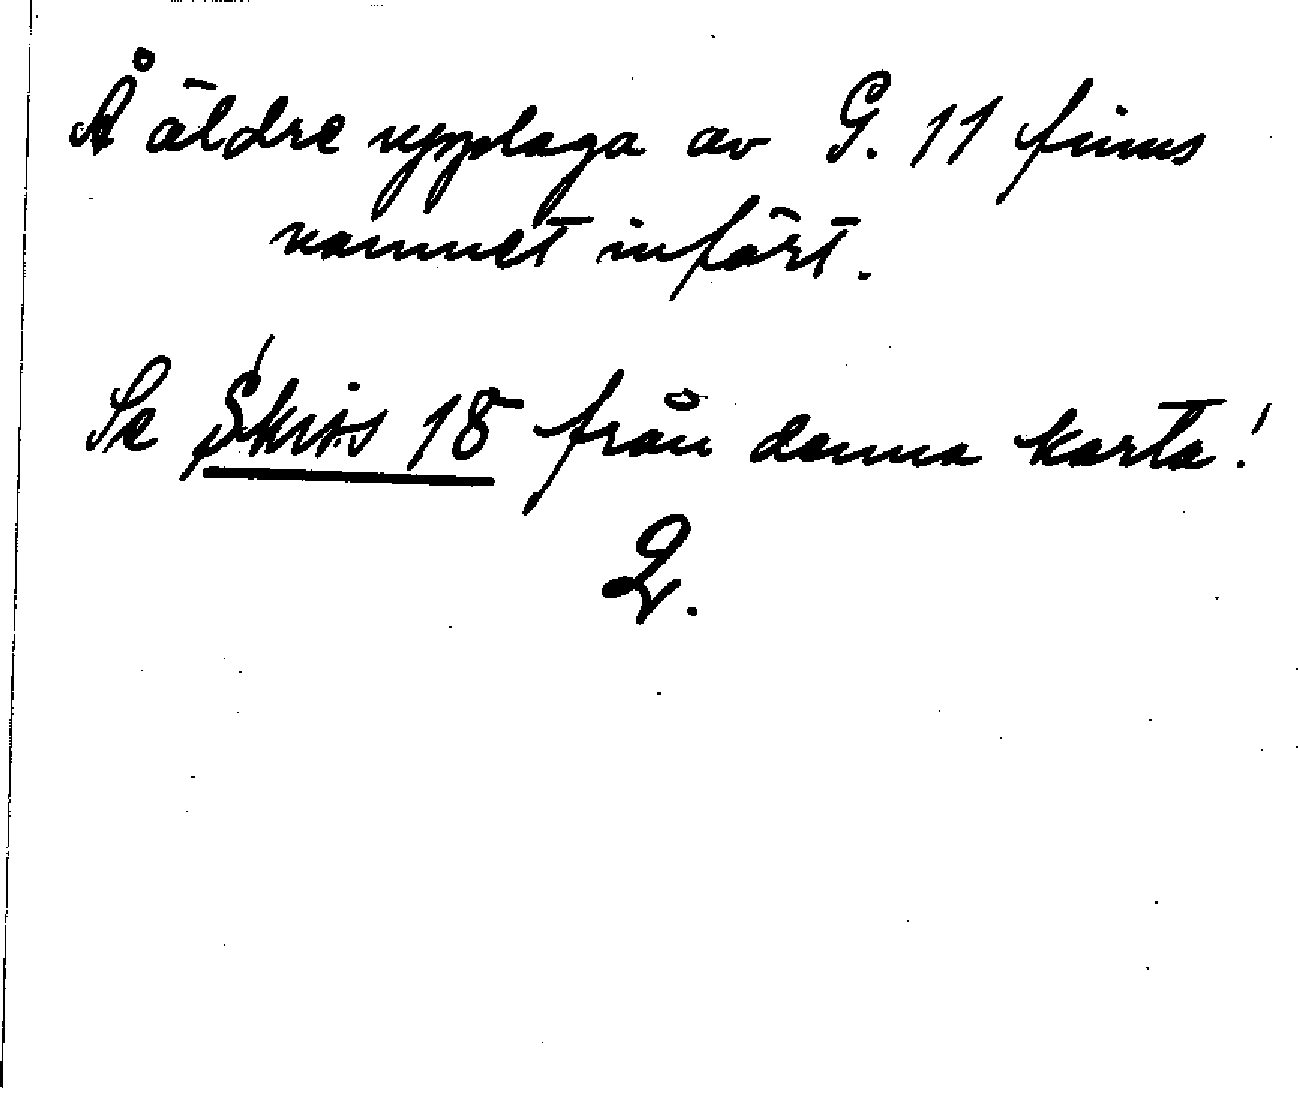 Å äldre upplaga av G. 11 finns
namnet infört.
Se Skiss 18 från denna karta!
2.